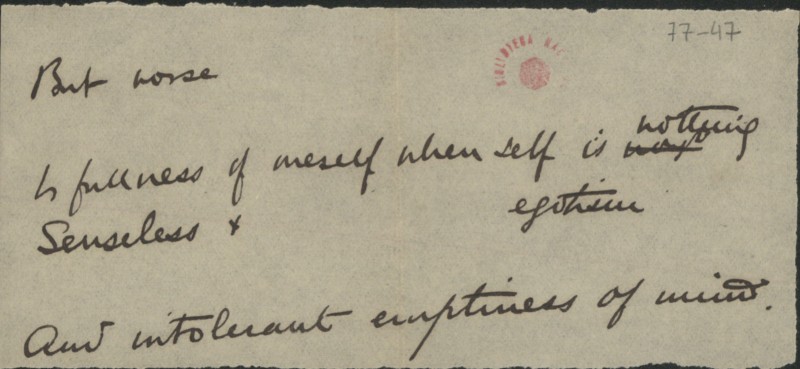 77-47
BIBLIOTECA NAC
But worse
Is fullness of oneself when self is nothing
Senseless & egotism
And intolerant emptiness of mind.